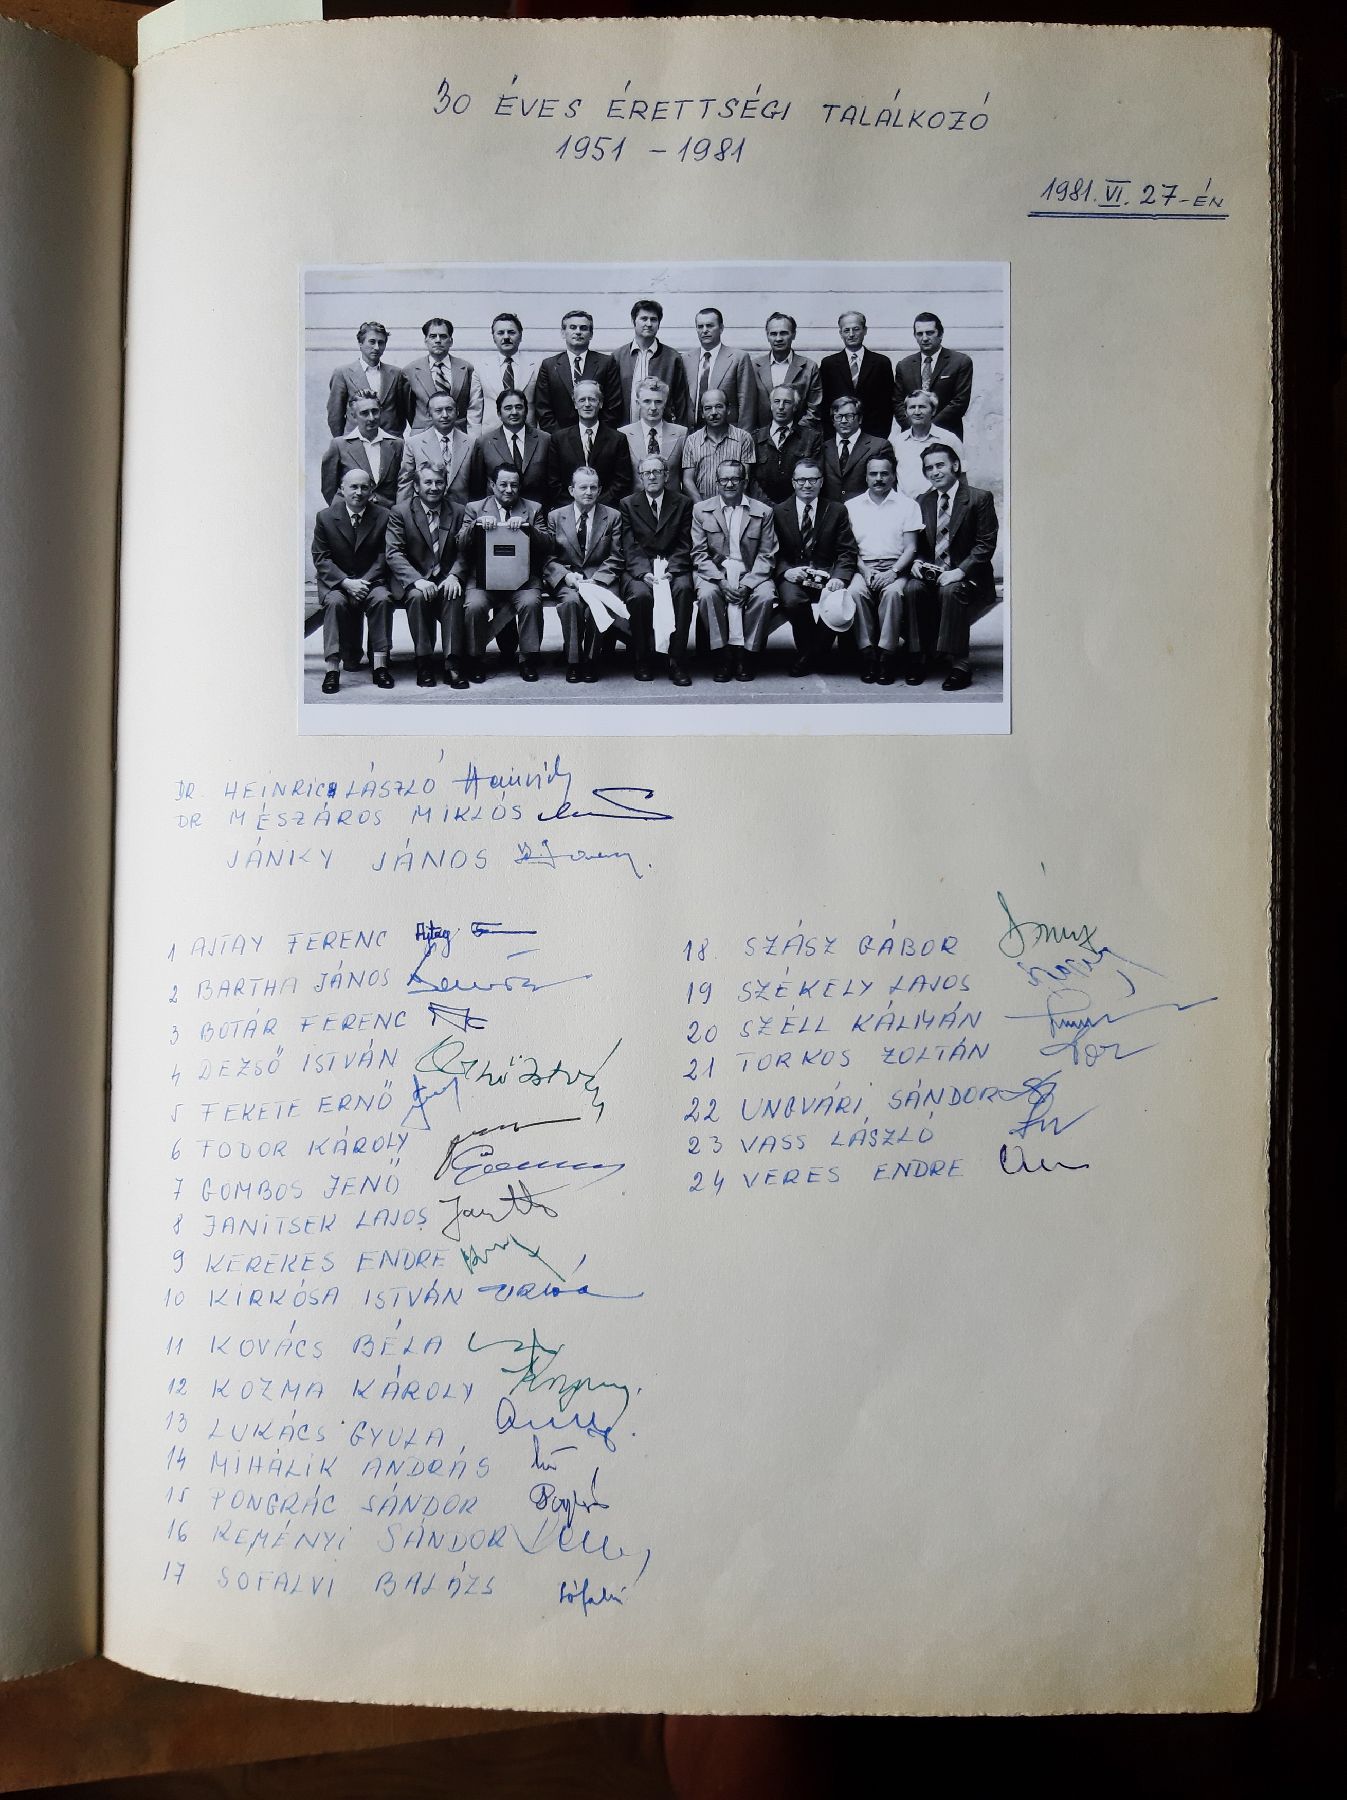 30 ÉVES ÉRETTSÉGI TALÁLKOZÓ
1951 - 1981
1981. VI. 27-ÉN
DR. HEINRICH LÁSZLÓ Heinrich
DR MÉSZÁROS MIKLÓS
JÁNKY JÁNOS
1 AJTAY FERENC Ajtay F
2 BARTHA JÁNOS
3 BOTÁR FERENC
4 DEZSŐ ISTVÁN Dezső István
5 FEKETE ERNŐ
6 FODOR KÁROLY
7 GOMBOS JENŐ
8 JANITSEK LAJOS
9 KEREKES ENDRE
10 KIRKÓSA ISTVÁN
11 KOVÁCS BÉLA
12 KOZMA KÁROLY
13 LUKÁCS GYULA
14 MIHÁLIK ANDRÁS
15 PONGRÁC SÁNDOR
16 REMÉNYI SÁNDOR
17 SOFALVI BALÁZS Sófalvi
18. SZÁSZ GÁBOR
19 SZÉKELY LAJOS
20 SZÉLL KÁLMÁN
21 TORKOS ZOLTÁN
22 UNGVÁRI SÁNDOR
23 VASS LÁSZLÓ
24 VERES ENDRE